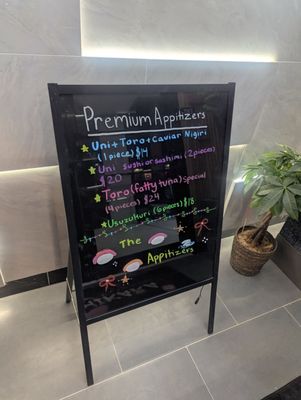 Premium Appitizers
Uni+Toro+Caviar Nigiri
(1 piece) $14
Uni sushi or sashimi (2 pieces)
$20
Toro (fatty tuna) special
(4 piece) $24
Usuzukuri (6 pieces) $18
The
Appitizers